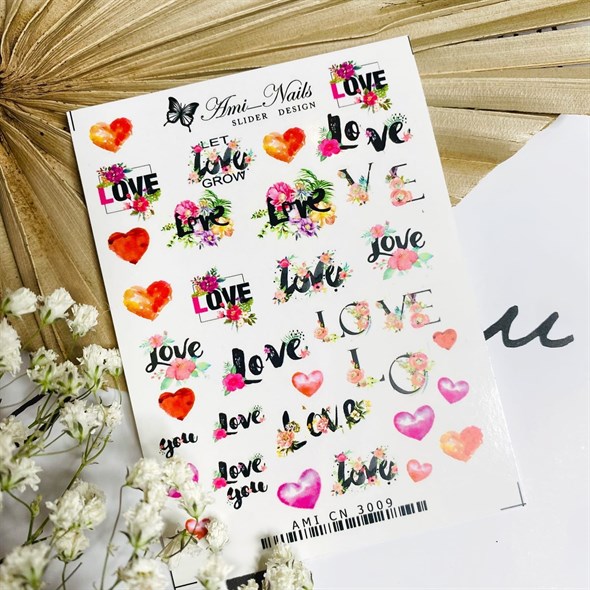 Ami—Nails
SLIDER DESIGN
LOVE
Love
LET
love
GROW
LOVE
VE
Love
Love
Love
LOVE
love
LOVE
Love
Love
LO
you
Love
LOVE
Love
you
love
AMI CN 3009
u